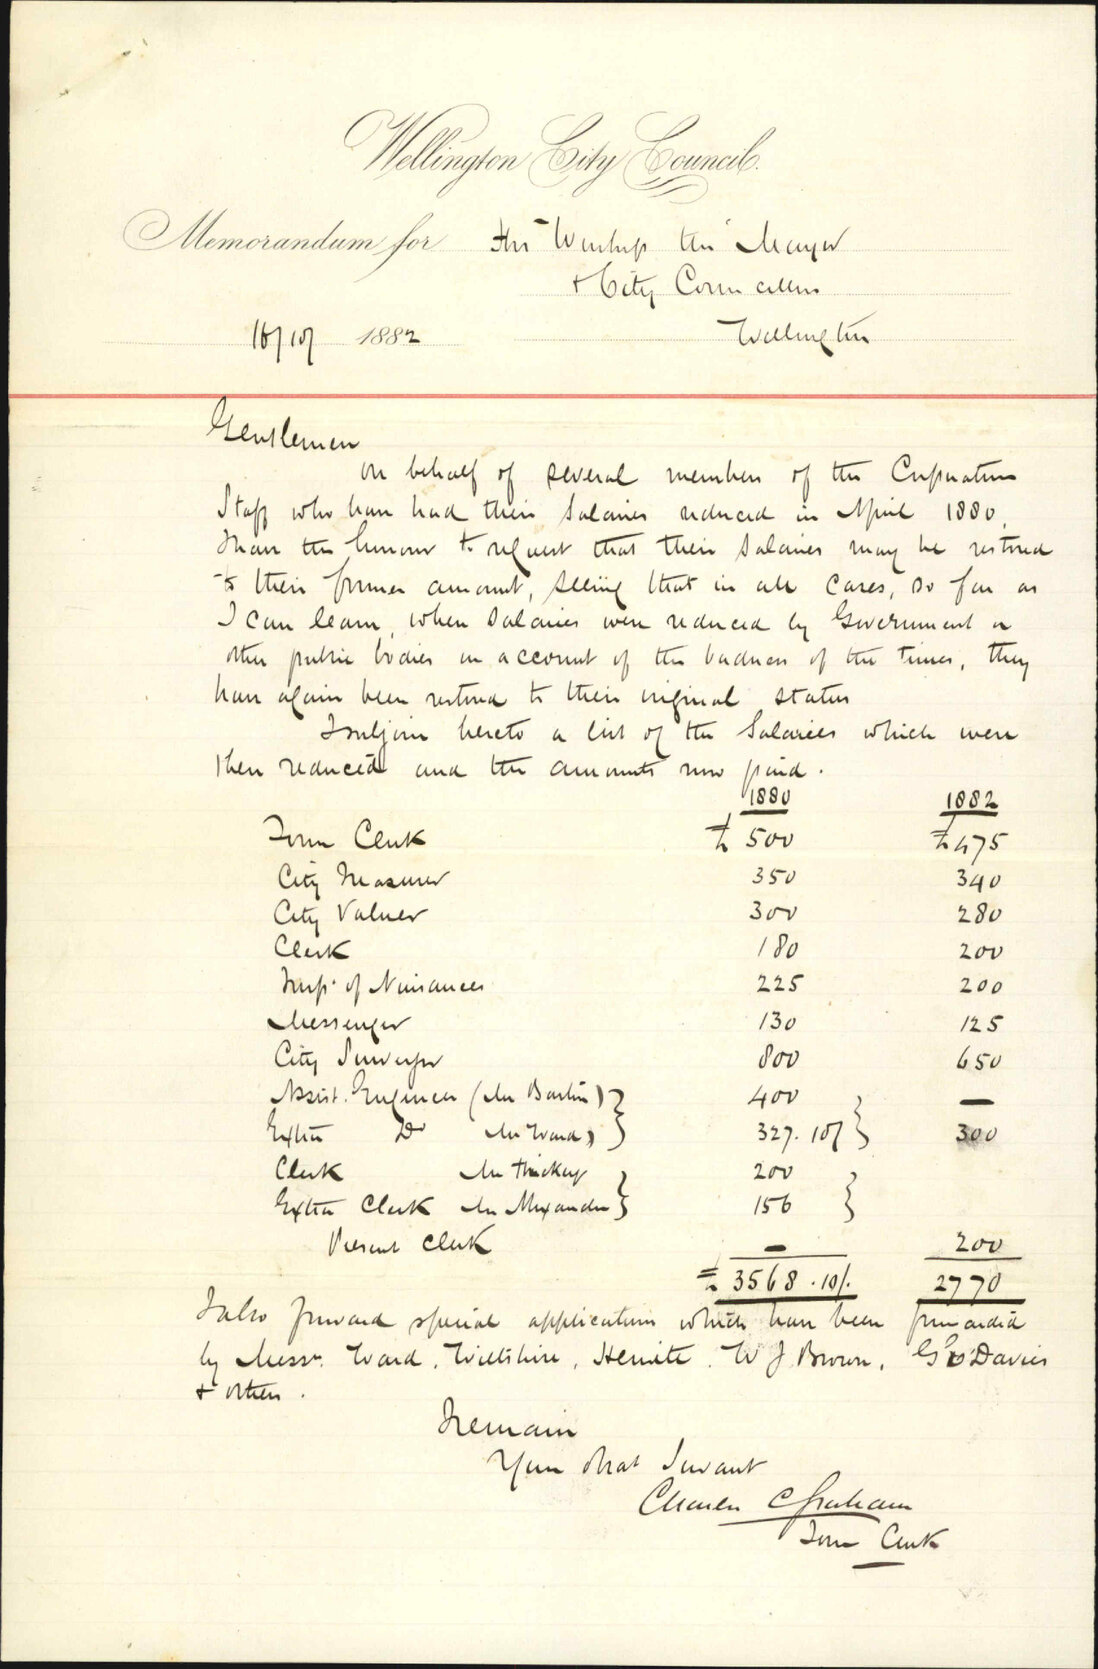 Wellington City Council.
Memorandum for His Worship the Mayor
& City Councillors
16/10/ 1882 Wellington
Gentlemen
On behalf of several members of the Corporation
Staff who have had their Salaries reduced in April 1880,
I have the honour to request that their Salaries may be restored
to their former amount, seeing that in all cases, so far as
I can learn, when Salaries were reduced by Government or
other public bodies on account of the badness of the times, they
have again been restored to their original status
I subjoin hereto a list of the Salaries which were
then reduced and the amounts now paid.
1880 1882
Town Clerk £ 500 £ 475
City Treasurer 350 340
City Valuer 300 280
Clerk 180 200
Insp. of Nuisances 225 200
Messenger 130 125
City Surveyor 800 650
Assist. Engineer (Mr Baird) 400 —
Extra Do (Mr Ward) 327.10/ 300
Clerk Mr 200
Extra Clerk Mr Alexander 156
Present Clerk — 200
£ 3568.10/. 2770
I also forward special applications which have been forwarded
by Messrs. Ward, Wiltshire, Hewitt, W J Brown, Davies
& others.
I remain
Your Obdt Servant
Charles C Graham
Town Clerk